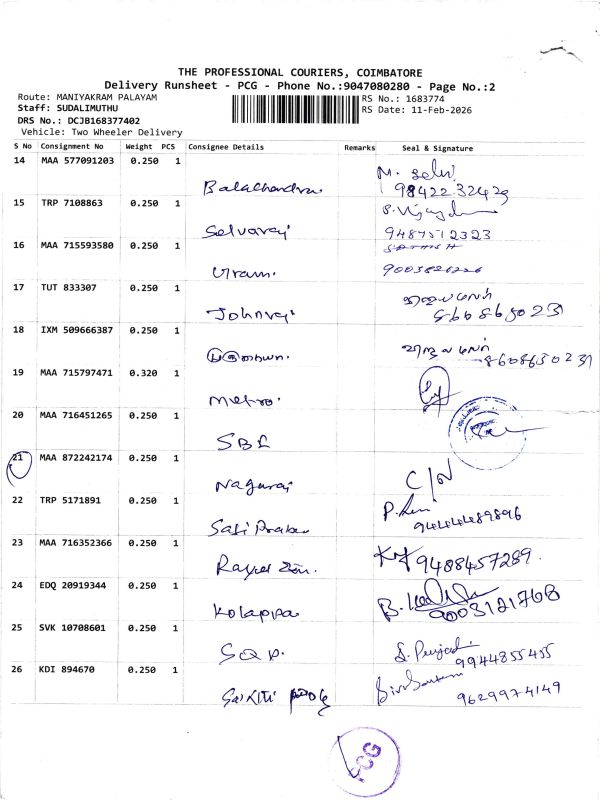 THE PROFESSIONAL COURIERS, COIMBATORE
Delivery Runsheet - PCG - Phone No.:9047080280 - Page No.:2
Route: MANIYAKRAM PALAYAM
Staff: SUDALIMUTHU
DRS No.: DCJB168377402
Vehicle: Two Wheeler Delivery
RS No.: 1683774
RS Date: 11-Feb-2026
S No Consignment No Weight PCS Consignee Details Remarks Seal & Signature
14 MAA 577091203 0.250 1 Balachandra M. Selvi
15 TRP 7108863 0.250 1 Selvaraj
16 MAA 715593580 0.250 1
17 TUT 833307 0.250 1 Johnraj
18 IXM 509666387 0.250 1 8608630231
19 MAA 715797471 0.320 1 Metro.
20 MAA 716451265 0.250 1 SBI
21 MAA 872242174 0.250 1 Nagaraj C/N
22 TRP 5171891 0.250 1
23 MAA 716352366 0.250 1 9488457289.
24 EDQ 20919344 0.250 1 Kolappa 9003121768
25 SVK 10708601 0.250 1 9944855455
26 KDI 894670 0.250 1 9629974149
PCG